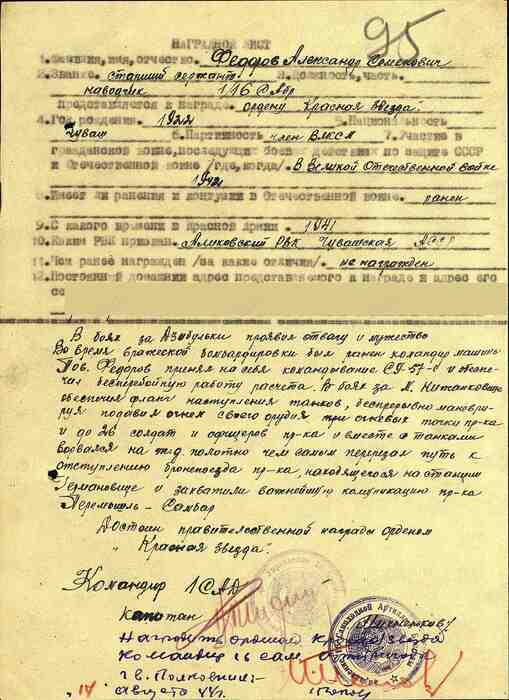 95
НАГРАДНОЙ ЛИСТ
1. Фамилия, имя, отчество. Федоров Александр Семенович
2. Звание. старший сержант 3. Должность, часть.
наводчик 1/16 САбр
представляется к награде. ордену "Красная Звезда"
4. Год рождения. 1922 5. Национальность
чуваш 6. Партийность член ВЛКСМ 7. Участие в
гражданской войне, последующих боевых действиях по защите СССР
и Отечественной войне /где, когда/. В Великой Отечественной войне
194
8. Имеет ли ранения и контузии в Отечественной войне. ранен
9. С какого времени в Красной Армии. 1941
10. Каким РВК призван. Аликовский РВК Чувашская АССР
11. Чем ранее награжден /за какие отличия/. не награжден
12. Постоянный домашний адрес представляемого к награде и адрес его
се
В боях за проявил отвагу и мужество
Во время вражеской бомбардировки был ранен командир машины
Тов. Федоров принял на себя командование СУ-57-с и
чил бесперебойную работу расчета. В боях за М.
обеспечил фланг наступления танков, беспрерывно маневри-
руя подавил огнем своего орудия три огневых точки пр-ка
и до 26 солдат и офицеров пр-ка и вместе с танками
ворвался на жд полотно чем самым перерезал путь к
отступлению бронепоезда пр-ка, находящегося на станции
Германовице и захватили важнейшую комуникацию пр-ка
Перемышль - Самбор
Достоин правительственной награды орденом
"Красная звезда".
Командир 1 САД
Капитан
Наградить орденом Красная Звезда
Командир 16 сам. бригады
гв. Полковник
"14" августа 44 г. /Попов/